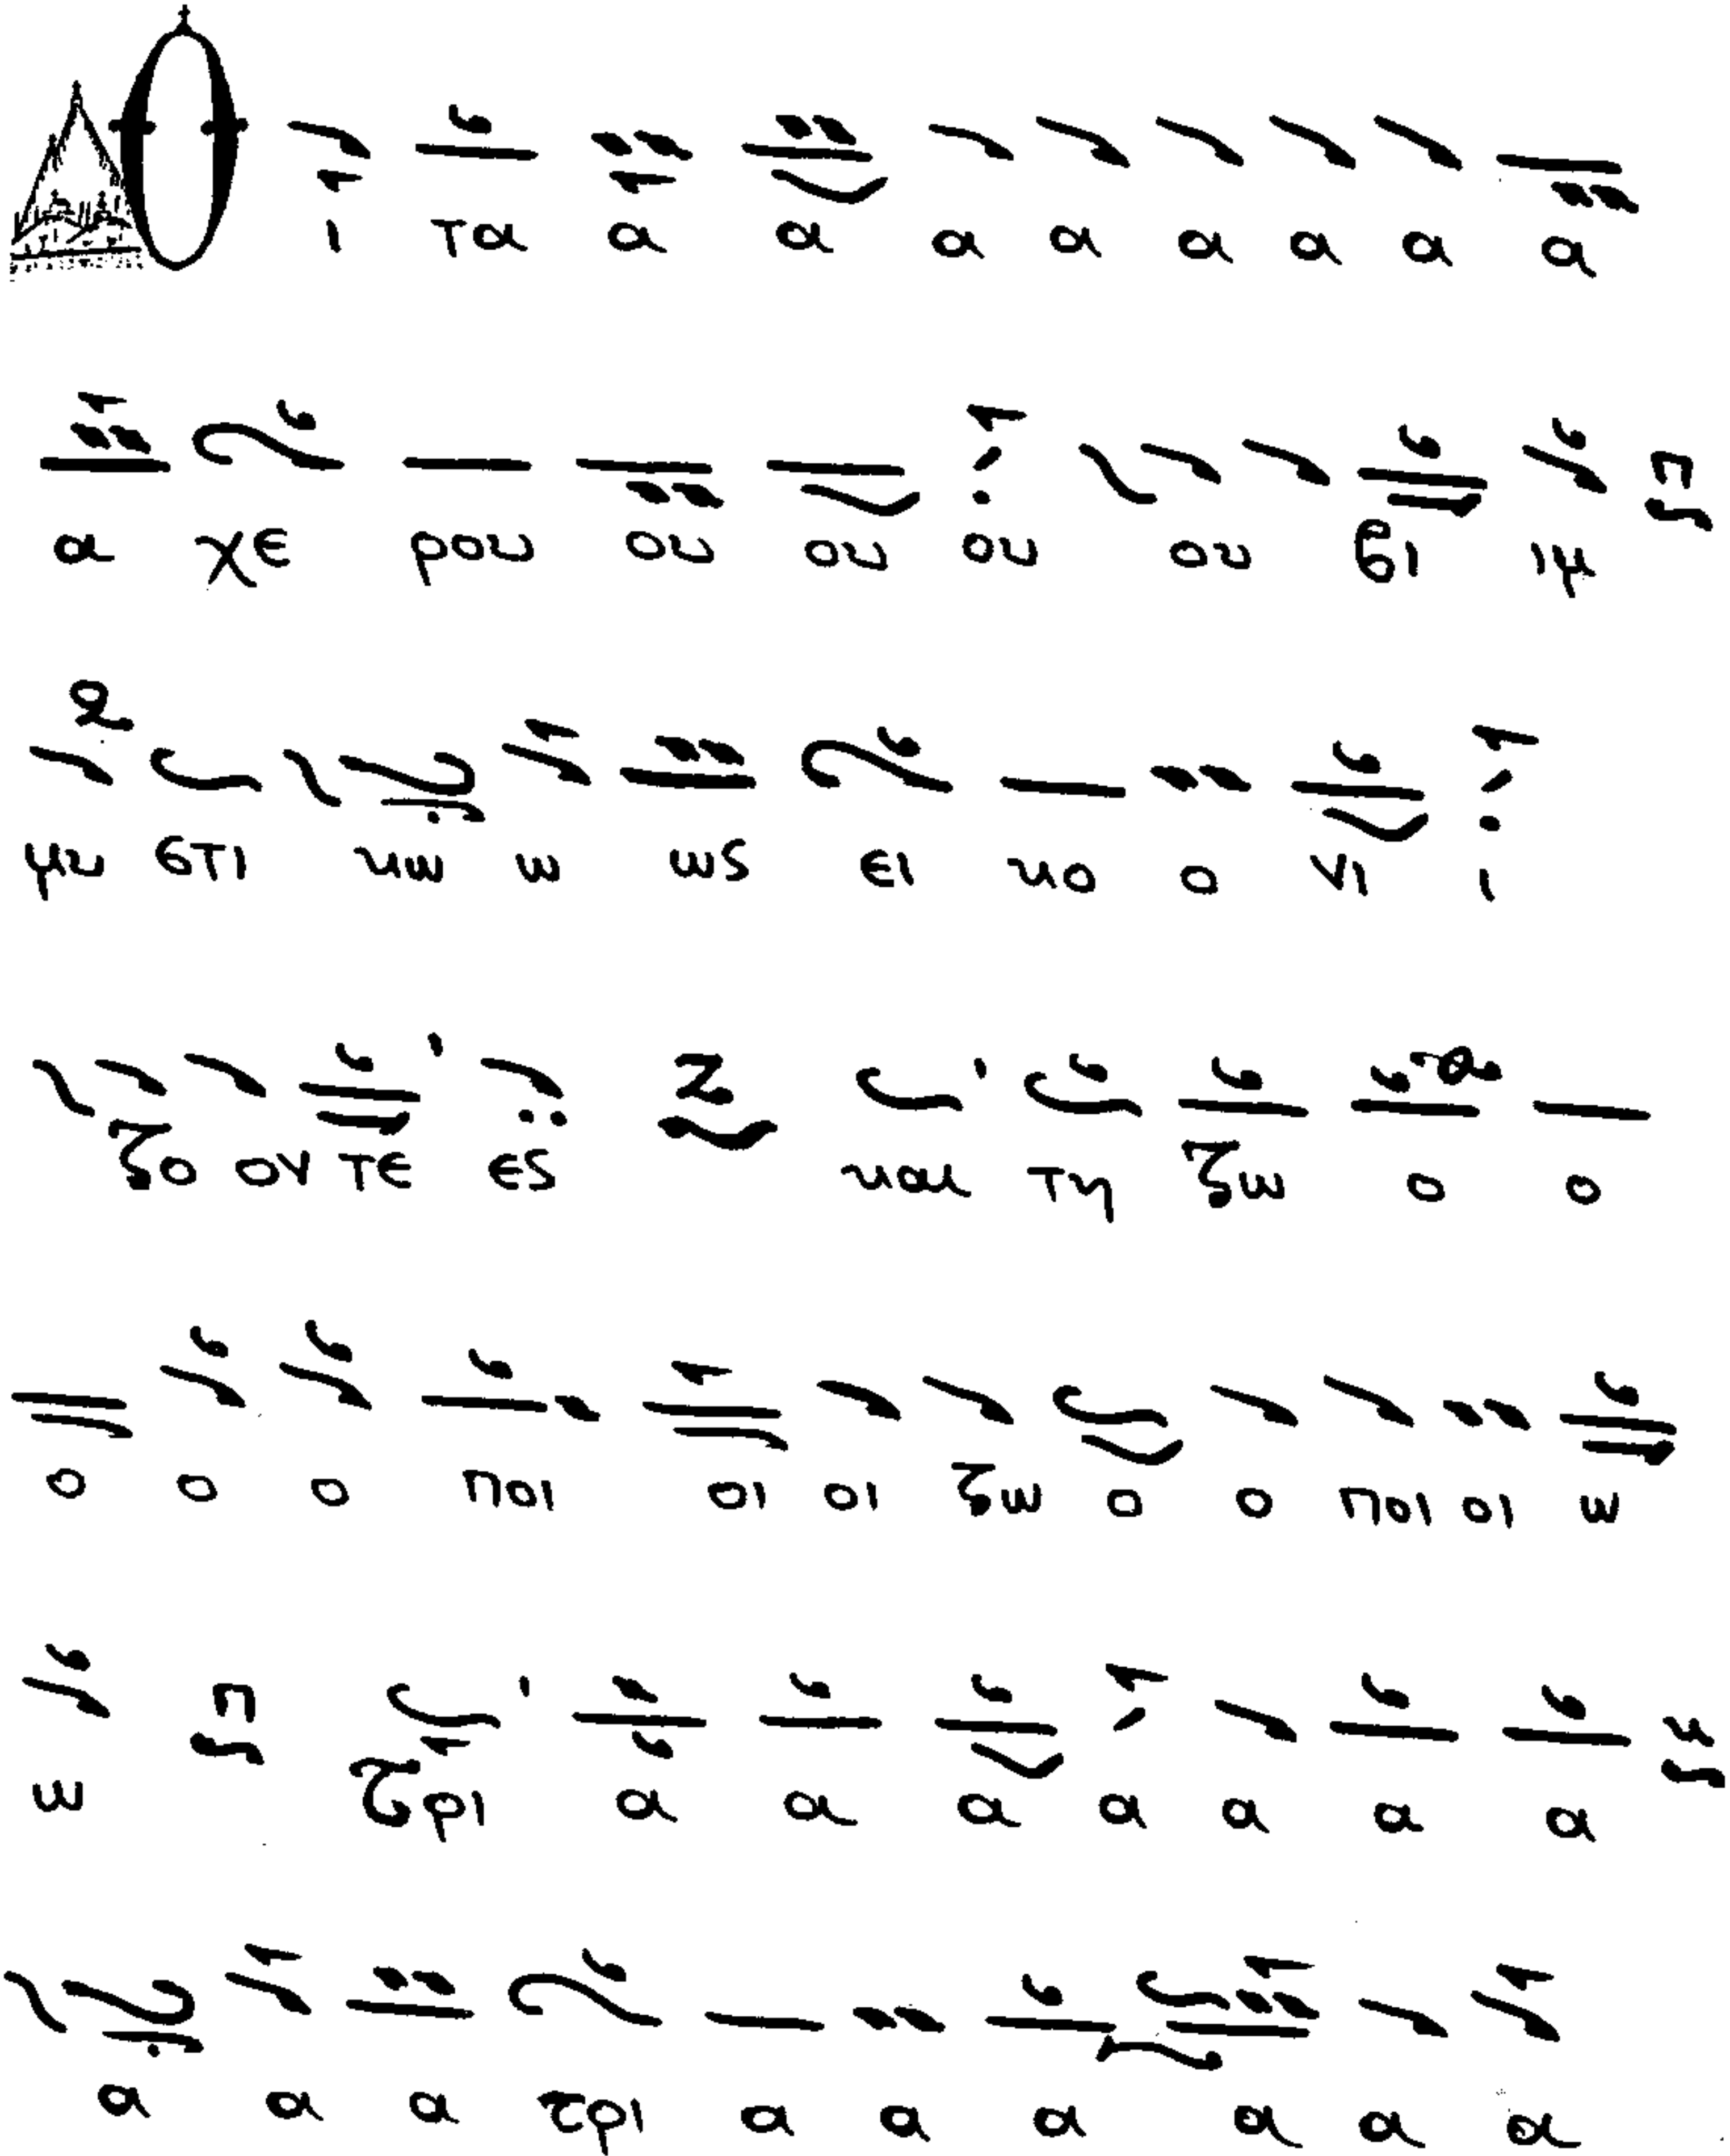 Ο ι τα α α α α α α α α
α χε ρου ου ου ου ου βι ιμ
μυ στι κω ω ως ει κο ο νι ι
ζο ον τε ες και τη ζω ο ο
ο ο ο ποι οι οι ζω ο ο ποι οι ω
ω Τρι α α α α α α α
α α α τρι α α α α α α